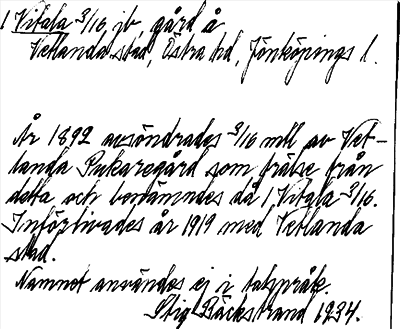 1 Vitala 3/16, jb, gård å
Vetlanda stad, Östra hd, Jönköpings l.
År 1892 avsöndrades 3/16 mtl av Vet-
landa Pukaregård som frälse från
detta och benämndes då 1 Vitala 3/16.
Införlivades år 1919 med Vetlanda
stad.
Namnet användes ej i talspråk.
Stig Bäckstrand 1934.